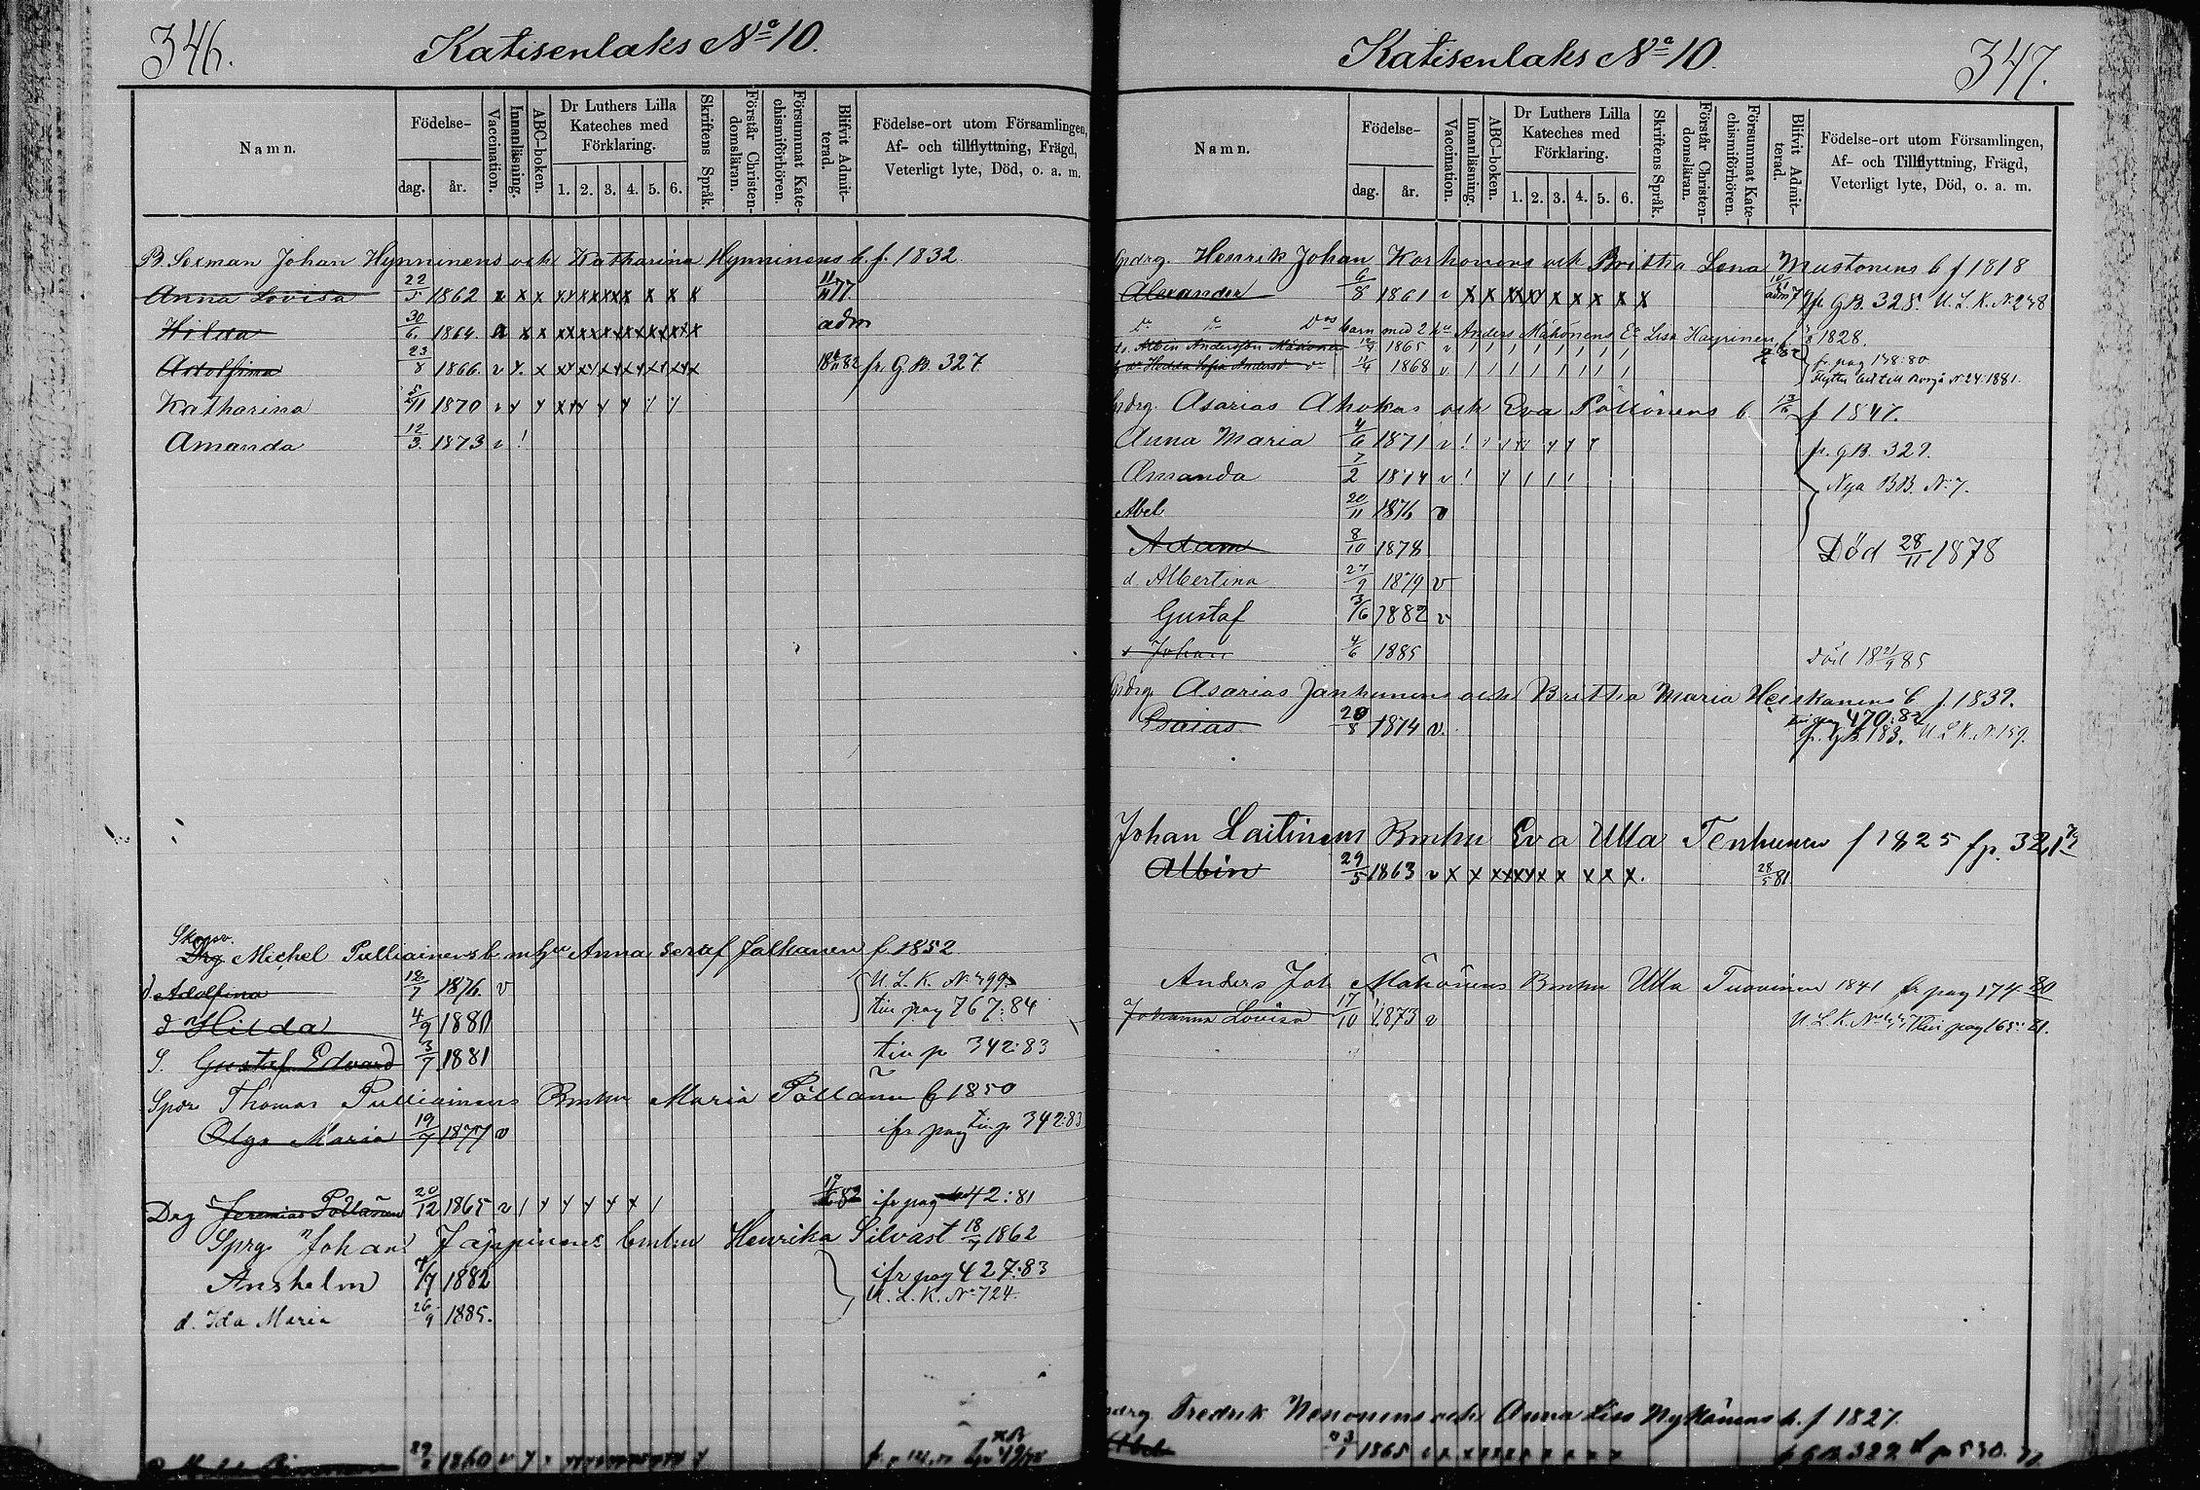 346.
Katisenlaks No 10.
Namn.
Födelse-
dag.
år.
Vaccination.
Innanläsning.
ABC-boken.
Dr Luthers Lilla Kateches med Förklaring.
1. 2. 3. 4. 5. 6.
Skriftens Språk.
Förstår Christendomsläran.
Försummat Katechismiförhören.
Blifvit Admitterad.
Födelse-ort utom Församlingen,
Af- och tillflyttning, Frägd,
Veterligt lyte, Död, o. a. m.
B. Sexman Johan Hynninens och Katharina Hynninens b. f. 1832
Anna Lovisa 22/5 1862 v x x x x x x x x x x x 77.
Hilda 30/6 1864 x x x x x x x x x x x adm
Adolfina 23/8 1866 v x x x x x x x x x x fr. G.B. 327
Katharina 5/11 1870
Amanda 12/3 1873 v !
Skogsv.
Drg Michel Pulliainens b. mhu Anna Seraf Jalkanen f. 1852
d Adolfina 18/7 1876. v U. L. K. No 499
d Hilda 4/9 1880 tiu pag 767:84
S. Gustaf Edvard 3/7 1881 tiu p 342:83
Spor Thomas Pulliainens Bmhu Maria Pöllänen f 1850
Olga Maria 19/7 1877 v ifr pag tiu p 342:83
Drg Jeremias Pöllänen 20/12 1865 v 82 ifr pag 42:81
Sprg Johan Jäppinens bmhu Henrika Silvast 18/7 1862
Anshelm 1882 ifr pag 427:83
U. L. K. No 724.
d. Ida Maria 26/9 1885.
1860
347.
Katisenlaks No 10.
Namn.
Födelse-
dag.
år.
Vaccination.
Innanläsning.
ABC-boken.
Dr Luthers Lilla Kateches med Förklaring.
1. 2. 3. 4. 5. 6.
Skriftens Språk.
Förstår Christendomsläran.
Försummat Katechismiförhören.
Blifvit Admitterad.
Födelse-ort utom Församlingen,
Af- och Tillflyttning, Frägd,
Veterligt lyte, Död, o. a. m.
Henrik Johan Korhonens och Brittha Lena Mustonens b f 1818
Alexander 6/8 1861 v x x x x x x x x x adm fr G.B. 328. U. L. K. No 248
barn med 2 hu Anders Mähönens Ea Lisa Häyrinen 1828.
Albin Andersson Mähönen 1865 v fr pag 138:80
Hedda Sofia Andersd 1868 v Flyttn bet till Borgå No 24:1881.
Asarias Ahokas och Eva Pöllönens b f 1847.
Anna Maria 4/6 1871 v ! fr. G.B. 329.
Amanda 7/2 1874 v ! Nya B.B. No 7.
Abel 20/11 1876 v
Adam 8/10 1878 Död 28/11 1878
d. Albertina 27/9 1879 v
Gustaf 3/6 1882 v
s Johan 4/6 1885 död 18 21/9 85
Asarias Janhunens och Brittha Maria Heiskanens b f. 1839.
Esaias 1874 v. tiu pag 470:82
fr. G.B. 183. U. L. K. No 159.
Johan Laitinens Bmhu Eva Ulla Tenhunen f 1825 fp. 321
Albin 29/5 1863 v x x x x x x x x x x. 28/5 81
Anders Joh Mähönens Bmhu Ulla Tuovinen 1841 fr pag 174 80
Johanna Lovisa 17/10 1873 v U. L. K. tiu pag 165:81.
Fredrik Nenonens och Anna Lisa Nykänens b. f 1827
Abel 1865 G.B. 322